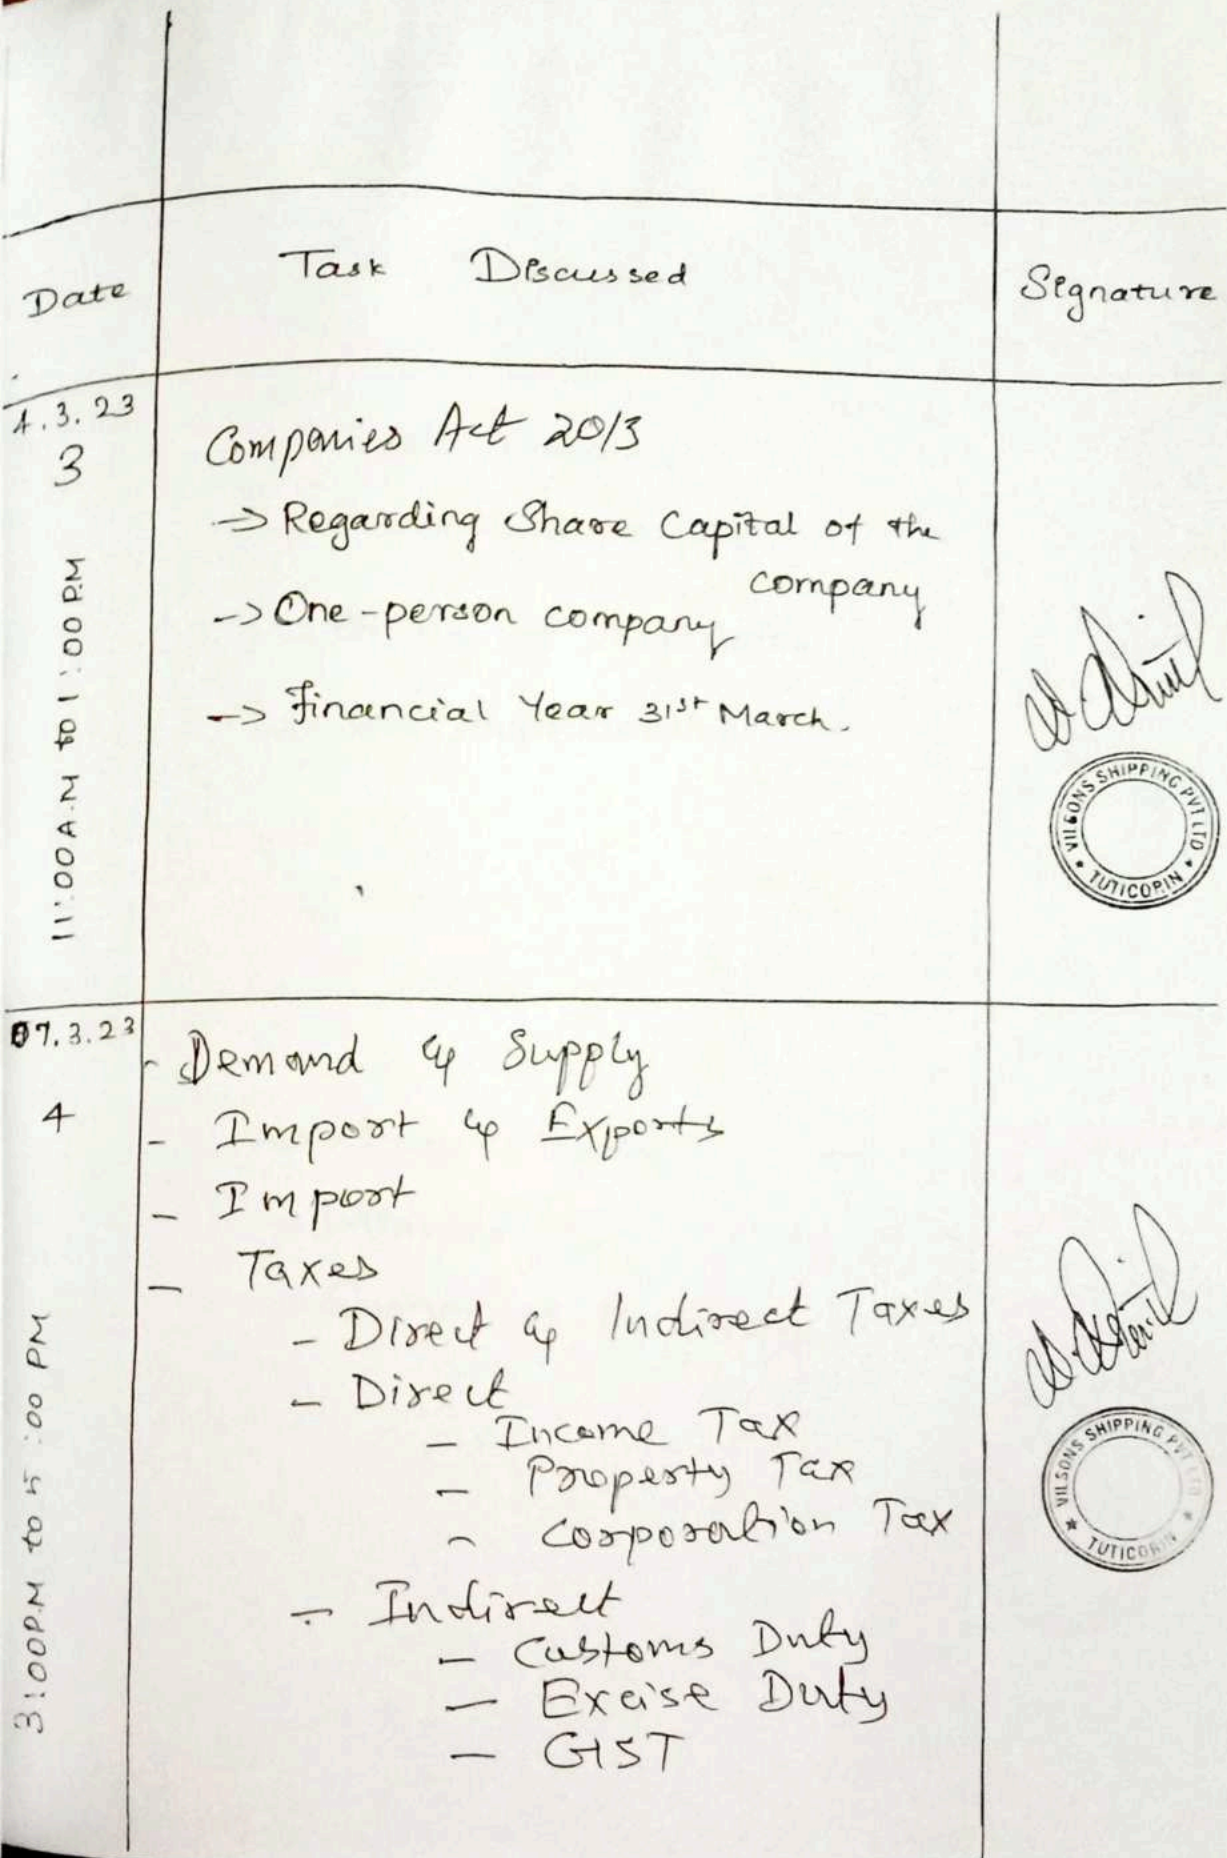 Date
Task Discussed
Signature
4.3.23
3
11:00 A.M to 1:00 P.M
Companies Act 2013
-> Regarding Share Capital of the
company
-> One-person company
-> Financial Year 31st March.
VILSONS SHIPPING PVT LTD
★ TUTICORIN ★
07.3.23
4
3:00 P.M to 5:00 PM
- Demand & Supply
- Import & Exports
- Import
- Taxes
- Direct & Indirect Taxes
- Direct
- Income Tax
- Property Tax
- Corporation Tax
- Indirect
- Customs Duty
- Excise Duty
- GST
VILSONS SHIPPING PVT LTD
★ TUTICORIN ★